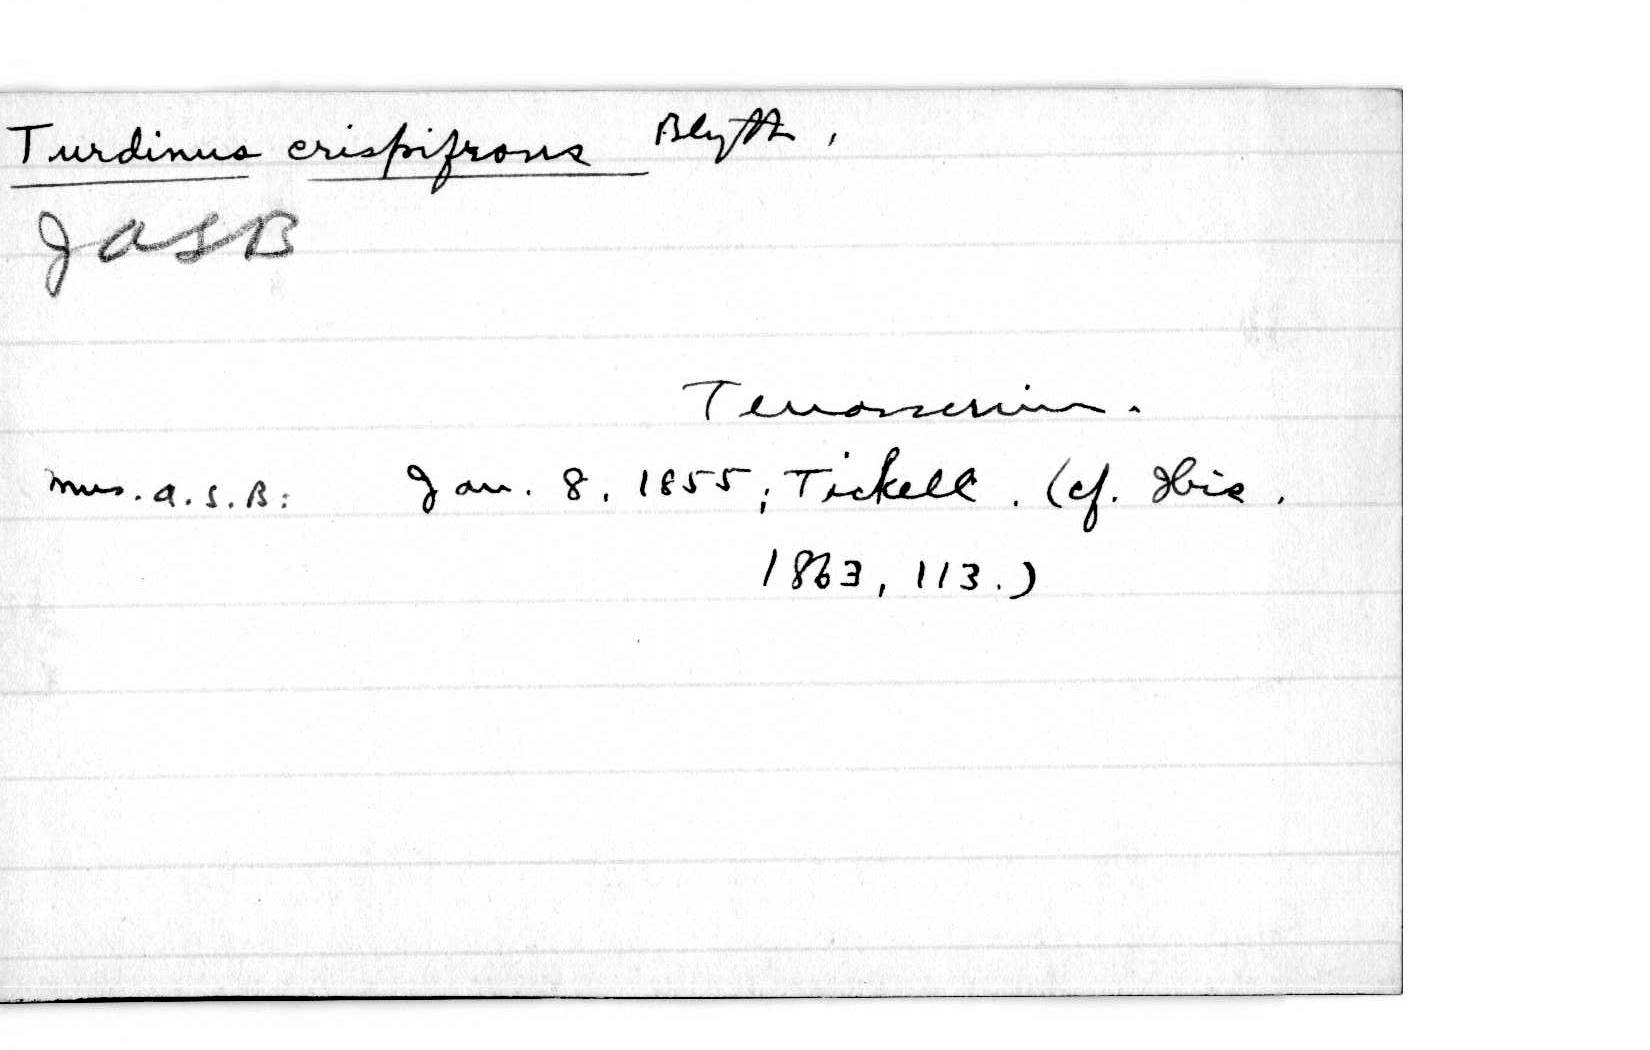 Turdinus crispifrons Blyth,
JASB
Tenasserim.
Mus. A.S.B: Jan. 8, 1855; Tickell. (cf. Ibis.
1863, 113.)